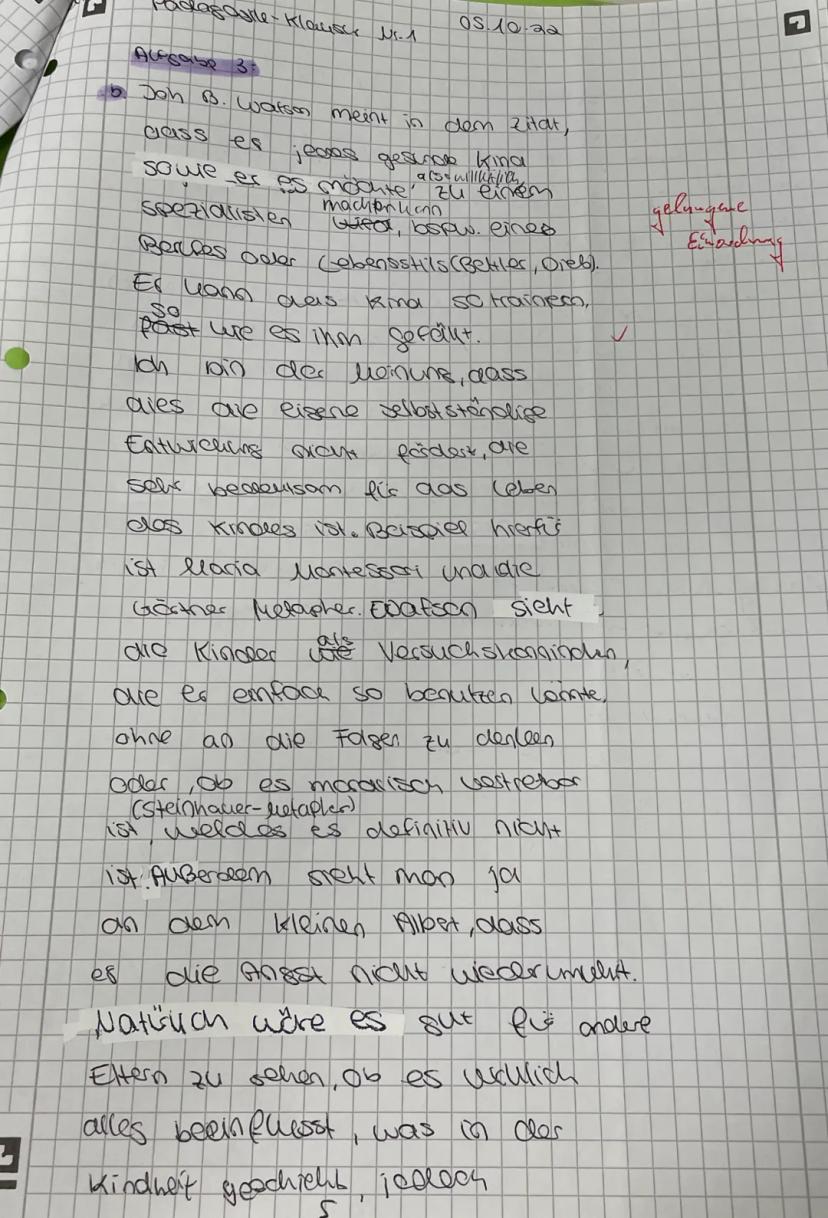 Pädagogik-Klausur Nr.1 05.10.22
Aufgabe 3:
b. Joh B. Watson meint in dem Zitat,
dass er jedes gesunde Kind
sowie er es möchte, also willkürlich, zu einem
spezialisten machen kann, bspw. eines
Berufes oder Lebensstils (Bettler, Dieb).
gelungene
Einordnung
Er kann das Kind so trainieren,
so wie es ihm gefällt. ✓
Ich bin der Meinung, dass
dies die eigene selbstständige
Entwicklung nicht fördert, die
sehr bedeutsam für das Leben
des Kindes ist. Beispiel hierfür
ist Maria Montessori und die
Gärtner Metapher. Watson sieht
die Kinder als Versuchskaninchen,
die er einfach so benutzen könnte,
ohne an die Folgen zu denken
oder, ob es moralisch vertretbar
(Steinhauer-Metapher)
ist, welches es definitiv nicht
ist. Außerdem sieht man ja
an dem kleinen Albert, dass
er die Angst nicht
Natürlich wäre es gut für andere
Eltern zu sehen, ob es wirklich
alles beeinflusst, was in der
Kindheit geschieht, jedoch
5